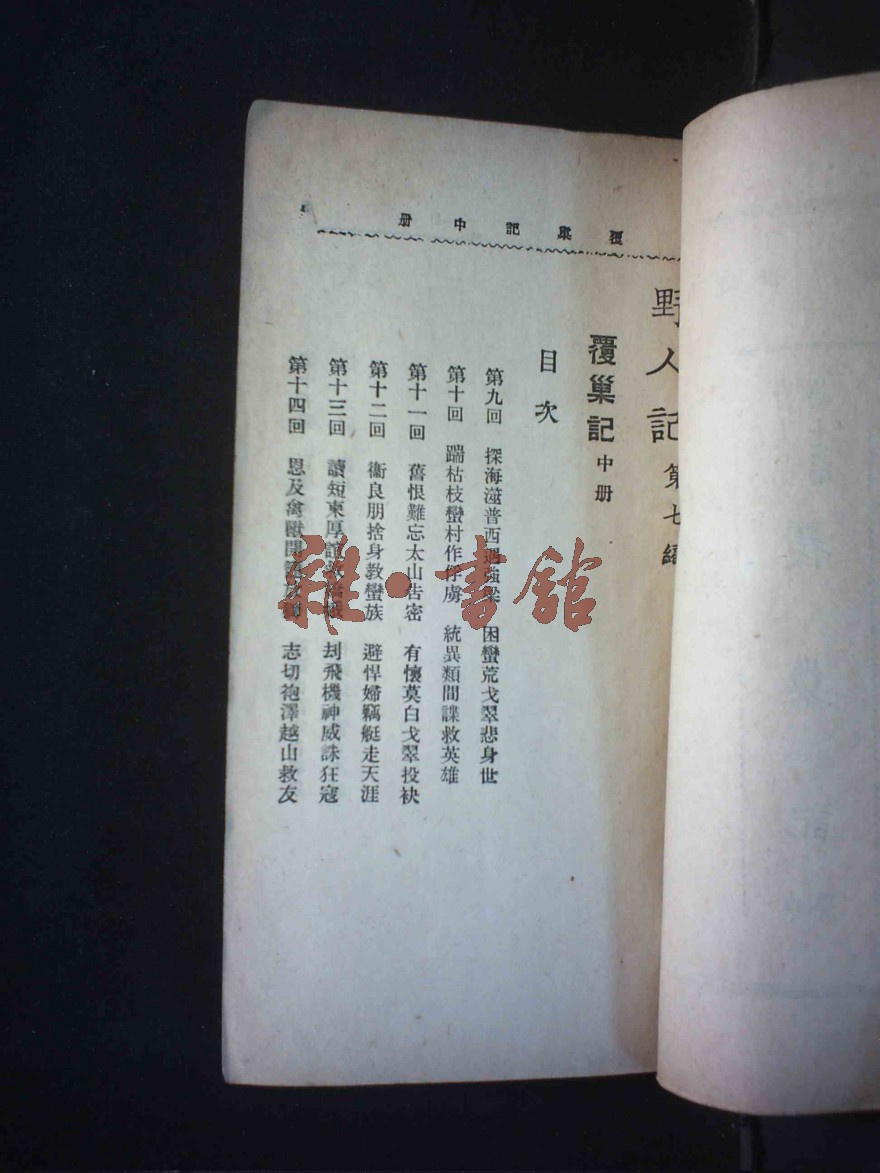 覆巢記中册
野人記第七編
覆巢記 中册
目次
第九回 探海澨普西遇強梁 困蠻荒戈翠悲身世
第十回 踹枯枝蠻村作俘虜 統異類間諜救英雄
第十一回 舊恨難忘太山告密 有懷莫白戈翠投袂
第十二回 衞良朋捨身教蠻族 避悍婦竊艇走天涯
第十三回 讀短柬厚誼 刦飛機神威誅狂寇
第十四回 恩及禽獸開 志切袍澤越山救友
雜·書館